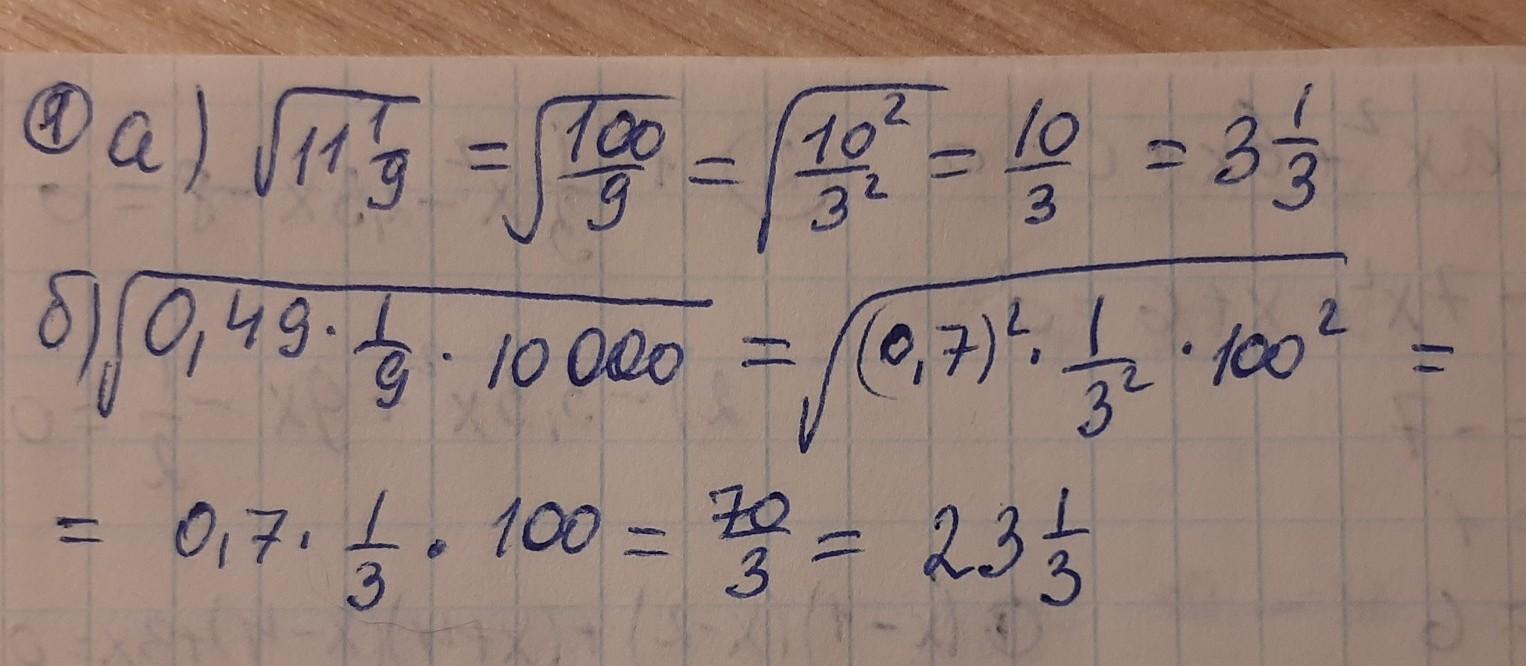 ① а) √(11 1/9) = √(100/9) = √(10²/3²) = 10/3 = 3 1/3
б) √(0,49 · 1/9 · 10000) = √((0,7)² · 1/3² · 100²) =
= 0,7 · 1/3 · 100 = 70/3 = 23 1/3